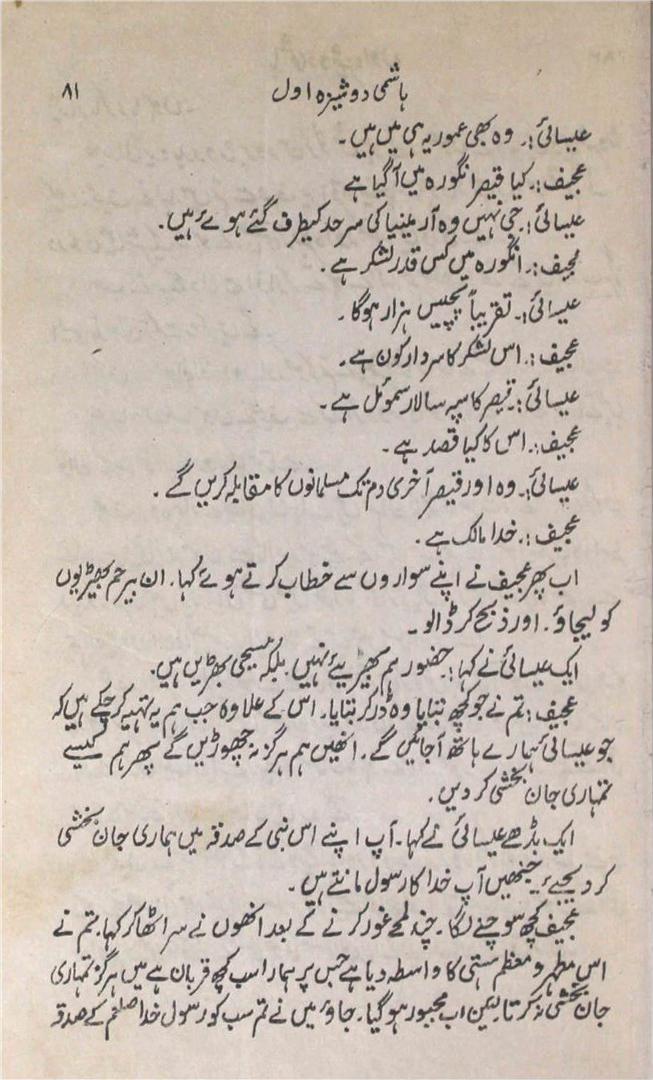 ہاشمی دوشیزہ اول ۸۱
عیسائی:۔ وہ بھی عموریہ ہی میں ہیں۔
عجیف:۔ کیا قیصر انگورہ میں آ گیا ہے
عیسائی:۔ جی نہیں وہ آرمینیا کی سرحد کیطرف گئے ہوئے ہیں۔
عجیف:۔ انگورہ میں کس قدر لشکر ہے۔
عیسائی:۔ تقریباً پچیس ہزار ہوگا۔
عجیف:۔ اس لشکر کا سردار کون ہے۔
عیسائی:۔ قیصر کا سپہ سالار سموئل ہے۔
عجیف:۔ اس کا کیا قصد ہے۔
عیسائی:۔ وہ اور قیصر آخری دم تک مسلمانوں کا مقابلہ کریں گے۔
عجیف:۔ خدا مالک ہے۔
اب پھر عجیف نے اپنے سواروں سے خطاب کرتے ہوئے کہا۔ ان بیرحم بھیڑیوں
کو لیجاؤ۔ اور ذبح کر ڈالو۔
ایک عیسائی نے کہا:۔ حضور ہم بھیڑیئے نہیں بلکہ مسیحی بھڑیں ہیں۔
عجیف:۔ تم نے جو کچھ بتایا وہ ڈر کر بتایا۔ اس کے علاوہ جب ہم یہ تہیہ کر چکے ہیں کہ
جو عیسائی ہمارے ہاتھ آ جائیں گے۔ انھیں ہم ہرگز نہ چھوڑیں گے پھر ہم کیسے
تمہاری جان بخشی کر دیں۔
ایک بڈھے عیسائی نے کہا۔ آپ اپنے اس نبی کے صدقہ میں ہماری جان بخشی
کر دیجیئے جنھیں آپ خدا کا رسول مانتے ہیں۔
عجیف کچھ سوچنے لگا۔ چند لمحے غور کرنے کے بعد انھوں نے سر اٹھا کر کہا۔ تم نے
اس مطہر و معظم ہستی کا واسطہ دیا ہے جس پر ہمارا سب کچھ قربان ہے میں ہرگز تمہاری
جان بخشی نہ کرتا لیکن اب مجبور ہو گیا۔ جاؤ میں نے تم سب کو رسول خدا صلعم کے صدقہ